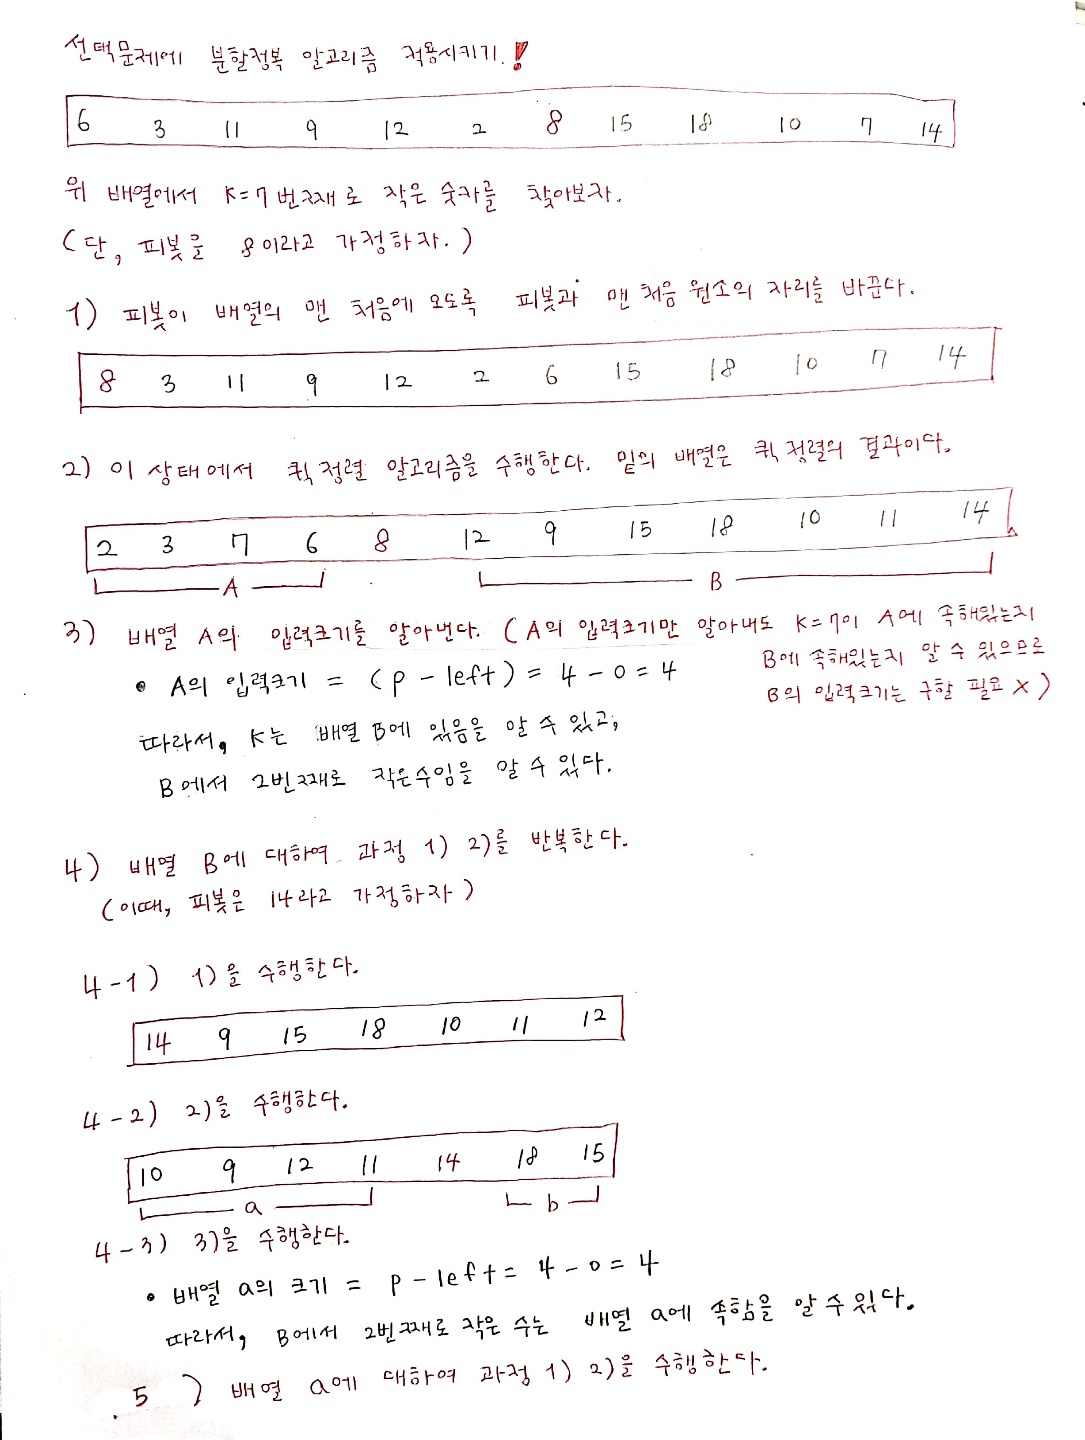 선택문제에 분할정복 알고리즘 적용시키기!
6 3 11 9 12 2 8 15 18 10 7 14
위 배열에서 K=7번째로 작은 숫자를 찾아보자.
(단, 피봇을 8이라고 가정하자.)
1) 피봇이 배열의 맨 처음에 오도록 피봇과 맨 처음 원소의 자리를 바꾼다.
8 3 11 9 12 2 6 15 18 10 7 14
2) 이 상태에서 퀵 정렬 알고리즘을 수행한다. 밑의 배열은 퀵 정렬의 결과이다.
2 3 7 6 8 12 9 15 18 10 11 14
A B
3) 배열 A의 입력크기를 알아낸다. (A의 입력크기만 알아내도 K=7이 A에 속해있는지
B에 속해있는지 알 수 있으므로
B의 입력크기는 구할 필요 X)
• A의 입력크기 = (P - left) = 4 - 0 = 4
따라서, K는 배열 B에 있음을 알 수 있고,
B에서 2번째로 작은수임을 알 수 있다.
4) 배열 B에 대하여 과정 1) 2)를 반복한다.
(이때, 피봇은 14라고 가정하자)
4-1) 1)을 수행한다.
14 9 15 18 10 11 12
4-2) 2)을 수행한다.
10 9 12 11 14 18 15
a b
4-3) 3)을 수행한다.
• 배열 a의 크기 = P - left = 4 - 0 = 4
따라서, B에서 2번째로 작은 수는 배열 a에 속함을 알 수 있다.
5) 배열 a에 대하여 과정 1) 2)을 수행한다.